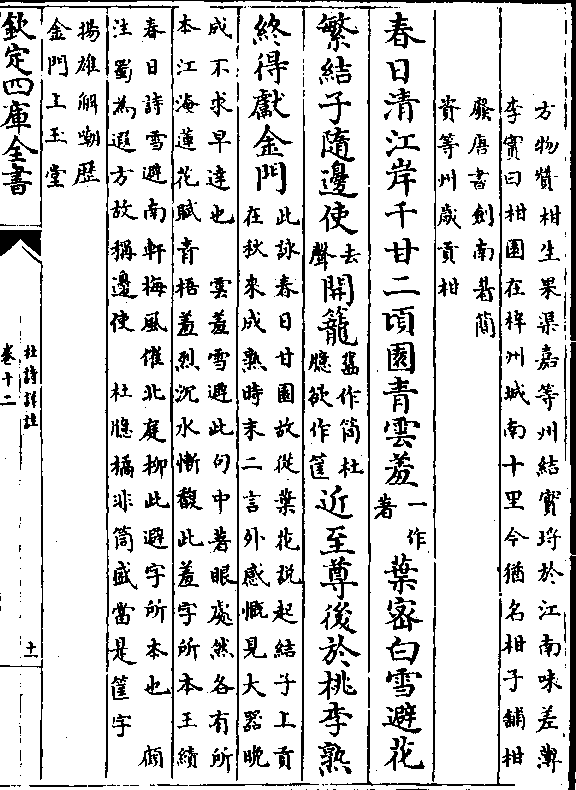 方物贊柑生果渠嘉等州結實埒於江南味差薄
李實曰柑園在梓州城南十里今猶名柑子鋪柑
廢唐書劍南眉簡
資等州歲貢柑
春日清江岸千甘二頃園青雲羞一作著葉密白雪避花
繁結子隨邊使去聲開籠舊作筒杜臆欲作筐近至尊後於桃李熟
終得獻金門
此詠春日甘園故從葉花說起結子上貢
在秋來成熟時末二言外感慨見大器晚
成不求早達也 雲羞雪避此句中著眼處然各有所
本江淹蓮花賦青梧羞烈沉水慚馥此羞字所本王績
春日詩雪避南軒梅風催北庭柳此避字所本也 顧
注蜀為遐方故稱邊使 杜臆橘非筒盛當是筐字
揚雄解嘲歷
金門上玉堂
欽定四庫全書
杜詩詳註
卷十二
十一